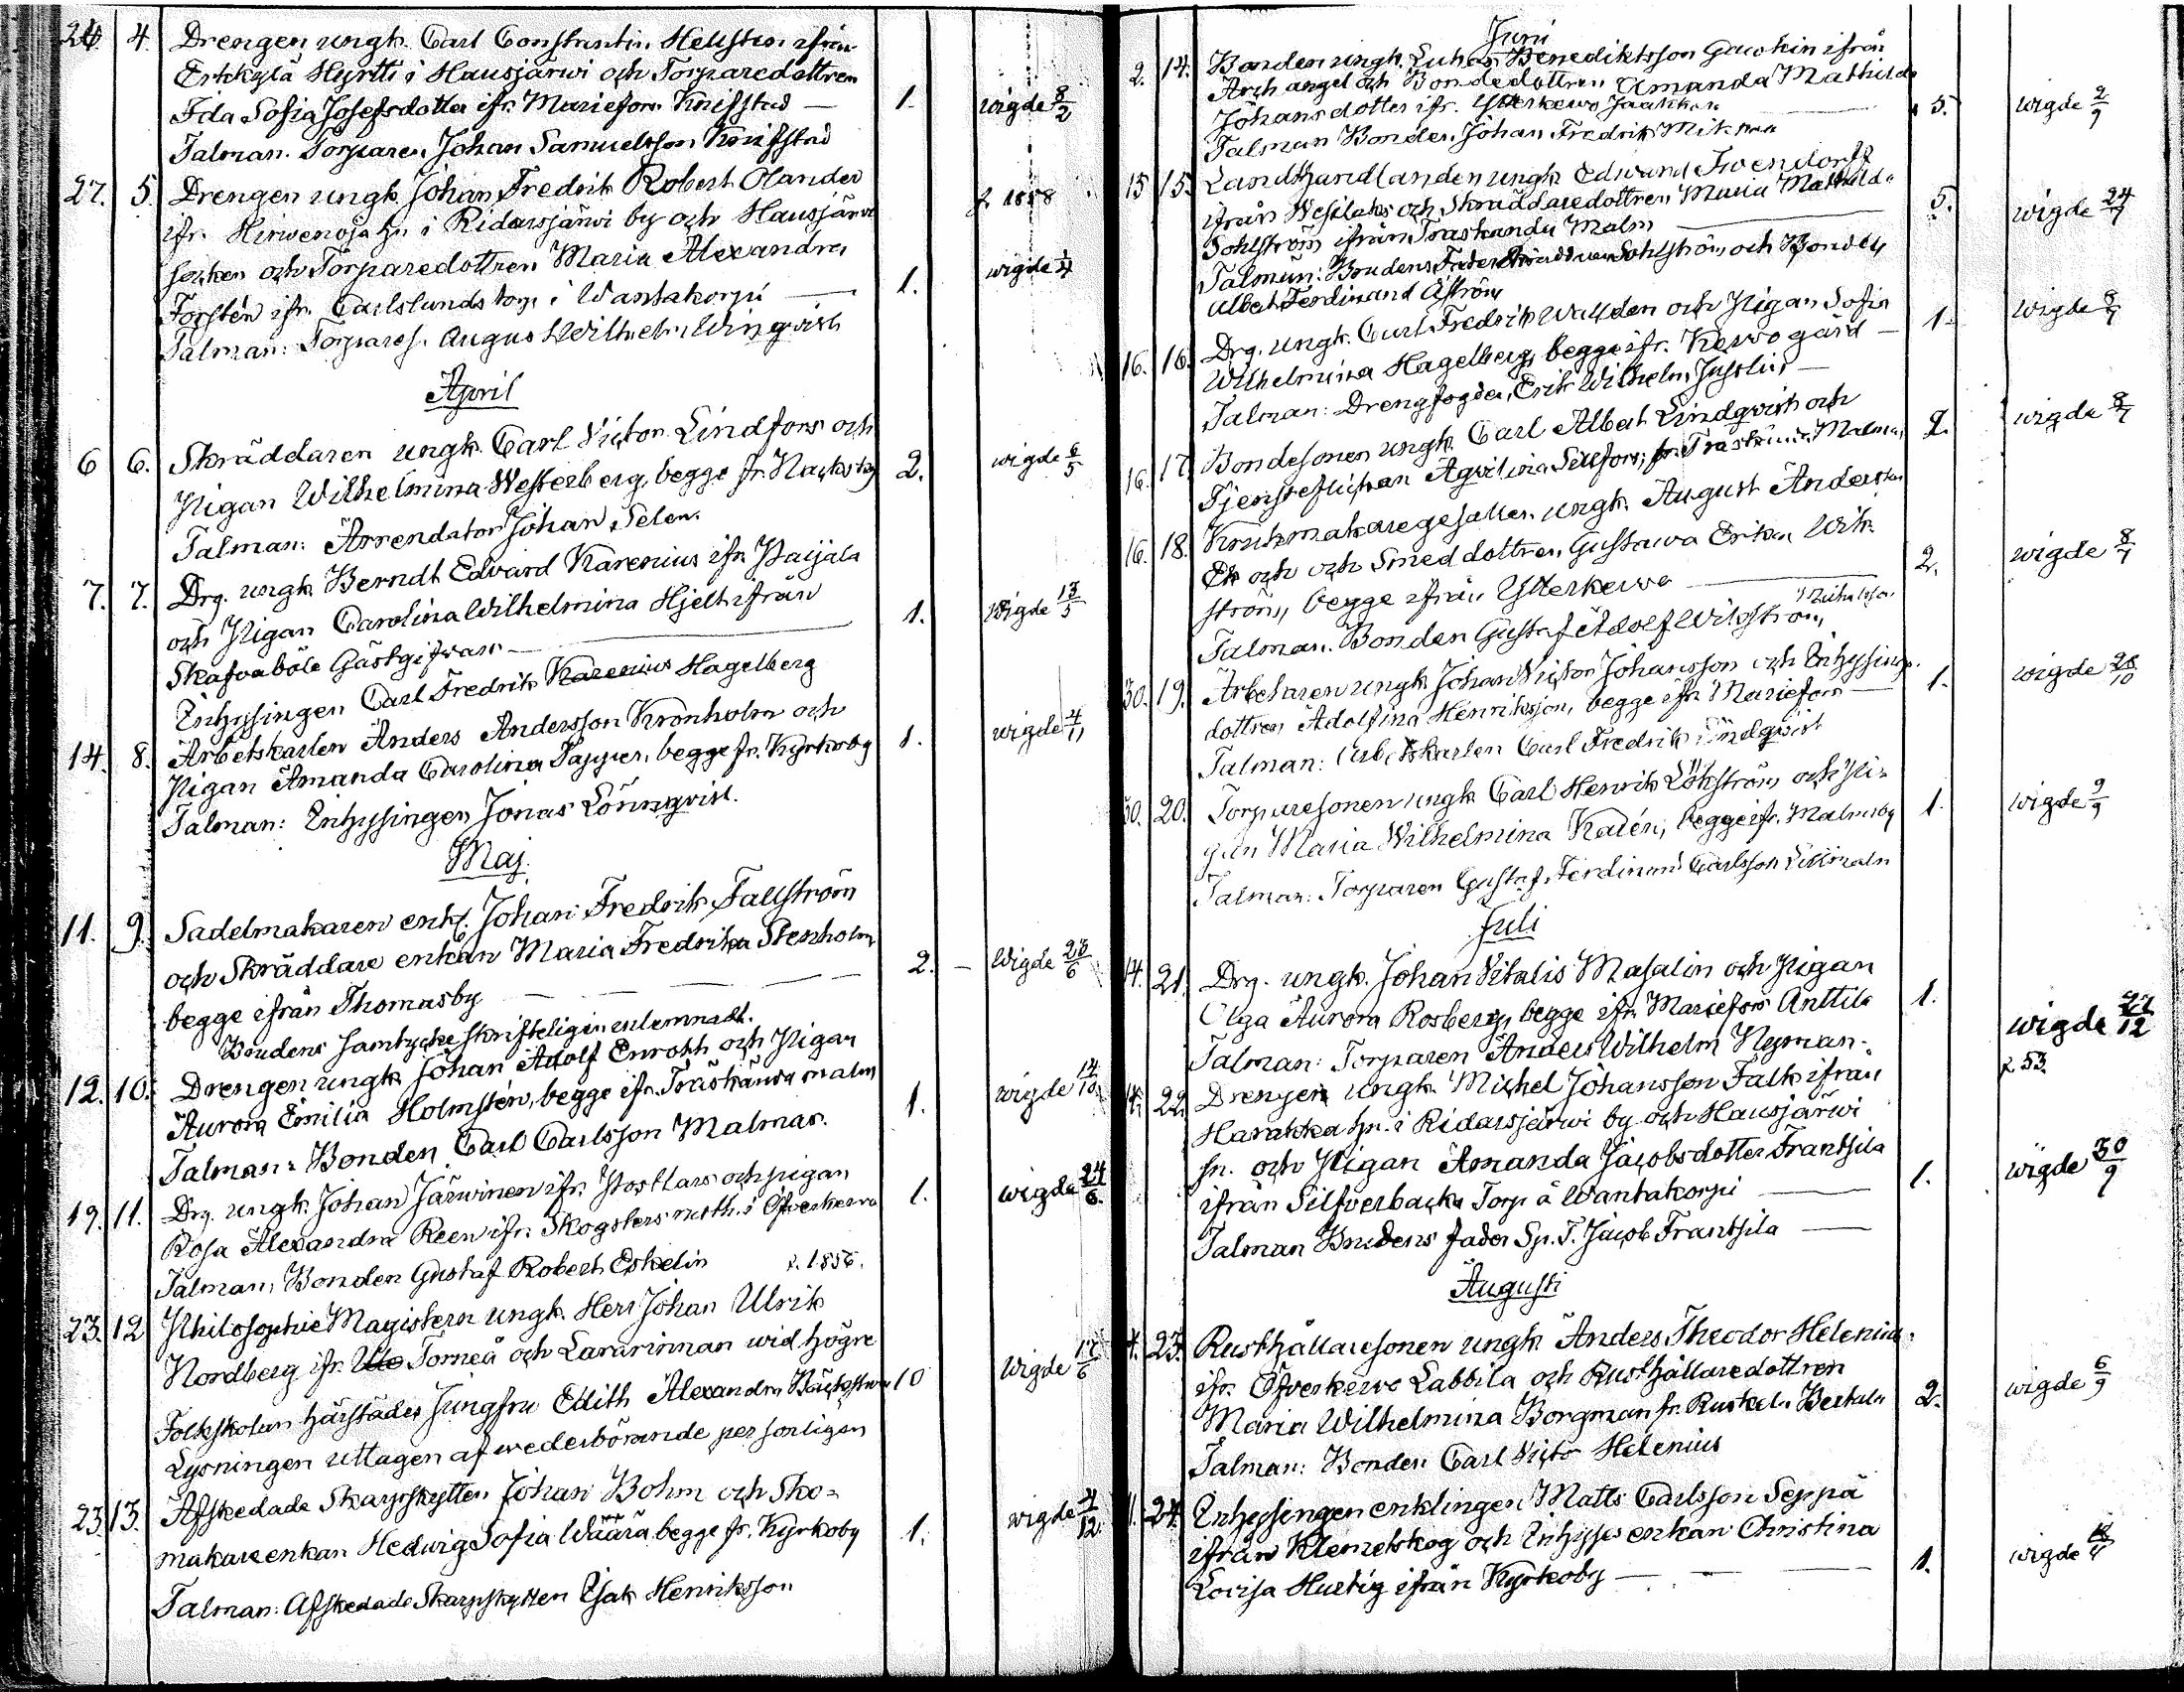 24. 4. Drengen ungk. Carl Constantin Hellsten ifrån
Erkkylä Hyrtti i Hausjärwi och Torparedottren
Ida Sofia Josefsdotter ifr. Mariefors Knifstad — 1. wigde 8/2
Talman. Torparen Johan Samuelsson Knifstad
27. 5. Drengen ungk. Johan Fredrik Robert Olander f. 1858
ifr. Hirwenoja hn i Ridasjärwi by och Hausjärwi
socken och Torparedottren Maria Alexandra
Forstén ifr. Carlslunds torp i Wantakorpi — 1. wigde 1/4
Talman: Torparen August Wilhelm Winqvist
April
6 6. Skräddaren ungk. Carl Victor Lindfors och
Pigan Wilhelmina Westerberg, begge fr. Nackby 2. wigde 6/5
Talman: Arrendator Johan Selen.
7. 7. Drg. ungk. Berndt Edvard Karenius ifr. Paijala
och Pigan Carolina Wilhelmina Hjelt ifrån
Skafvaböle Gästgifvars — 1. wigde 13/5
Inhysingen Carl Fredrik Karenius Hagelberg
14. 8. Arbetskarlen Anders Andersson Kronholm och
Pigan Amanda Carolina Tapper, begge fr. Kyrkoby 1. wigde 4/11
Talman: Inhysingen Jonas Lönnqvist.
Maj.
11. 9. Sadelmakaren enkl. Johan Fredrik Fallström
och Skräddare enkan Maria Fredrika Stenholm
begge ifrån Thomasby — 2. — wigde 23/6
Brudens samtycke skrifteligen inlemnadt.
12. 10. Drengen ungk. Johan Adolf Enroth och Pigan
Aurora Emilia Holmstén, begge ifr. Träskända malm 1. wigde 14/10
Talman: Bonden Carl Carlsson Malmar.
19. 11. Drg. ungk. Johan Järwinen ifr. Postlars och pigan 1. wigde 24/6.
Rosa Alexandra Reen ifr. Skogsters i Öfverkerwo
Talman, Bonden Gustaf Robert Eskelin f. 1856.
23. 12 Philosophie Magistern ungk. Herr Johan Ulrik
Nordberg ifr. Torneå och Lärarinnan wid högre
Folkskolan härstädes Jungfru Edith Alexandra 10 wigde 17/6
Lysningen uttagen af wederbörande personligen
23. 13. Afskedade Skarpskytten Johan Bohm och Sko-
makareenkan Hedwig Sofia Wäärä begge fr. Kyrkoby 1. wigde 4/12
Talman: Afskedade Skarpskytten Isak Henriksson
Juni
2. 14. Bonden ungk. Lukas Benediktsson Gawkin ifrån
Archangel och Bondedottren Amanda Mathilda
Johansdotter ifr. Ytterkerwo Jaakkola 5. wigde 2/9
Talman Bonden Johan Fredrik Mikman
15 15. Landthandlanden ungk. Edward
ifrån Wesilaks och Skräddaredottren Maria Mathilda 5. wigde 24/7
Sohlström ifrån Träskända Malm —
Talman: Brudens Fader Skräddaren Sohlström och Bonden
Albert Ferdinand Åström
16. 16. Drg. ungk. Carl Fredrik Wallden och Pigan Sofia
Wilhelmina Hagelberg, begge ifr. Kerwo gård — 1. wigde 8/7
Talman: Drengfogden Erik Wilhelm Jusslin —
16. 17. Bondesonen ungk. Carl Albert Lindqvist och
Tjensteflickan Aqvilina Sillfors, fr. Träskända Malm 2. wigde 8/7
16. 18. Krukmakaregesällen ungk. August Andersson
Ek och och Smeddottren Gustawa Erika Wik-
ström, begge ifrån Ytterkerwo — 2. wigde 8/7
Talman. Bonden Gustaf Adolf Wikström
30. 19. Arbetaren ungk. Johan Victor Johansson och Inhysinge-
dottren Adolfina Henriksson, begge ifr. Mariefors — 1. wigde 28/10
Talman: Arbetskarlen Carl Fredrik Lindqvist
30. 20. Torparesonen ungk. Carl Henrik Löfström och Pi-
gan Maria Wilhelmina Kaién, begge ifr. Malmsby 1. wigde 9/9
Talman: Torparen Gustaf Ferdinand Carlsson
Juli
14. 21. Drg. ungk. Johan Vitalis Masalin och Pigan
Olga Aurora Rosberg, begge ifr. Mariefors Anttila 1. wigde 27/12
Talman: Torparen Anders Wilhelm Nyman. f. 53.
14. 22. Drengen ungk. Michel Johansson Falk ifrån
Harakka hn. i Ridasjärwi by och Hausjärwi
sn. och Pigan Amanda Jacobsdotter Frantsila
ifrån Silfverbacka Torp å Wantakorpi — 1. wigde 30/9
Talman Brudens fader Sp. T. Jacob Frantsila —
Augusti
4. 23. Rusthållaresonen ungk. Anders Theodor Helenius
ifr. Öfverkerwo Labbila och Rusthållaredottren
Maria Wilhelmina Borgman fr. Ruskela Bertula 2. wigde 6/9
Talman: Bonden Carl Victor Helenius
11. 24. Inhysingen enklingen Matts Carlsson Seppä
ifrån Klemetskog och Inhyses enkan Christina
Lovisa Hurtig ifrån Kyrkoby — 1. wigde